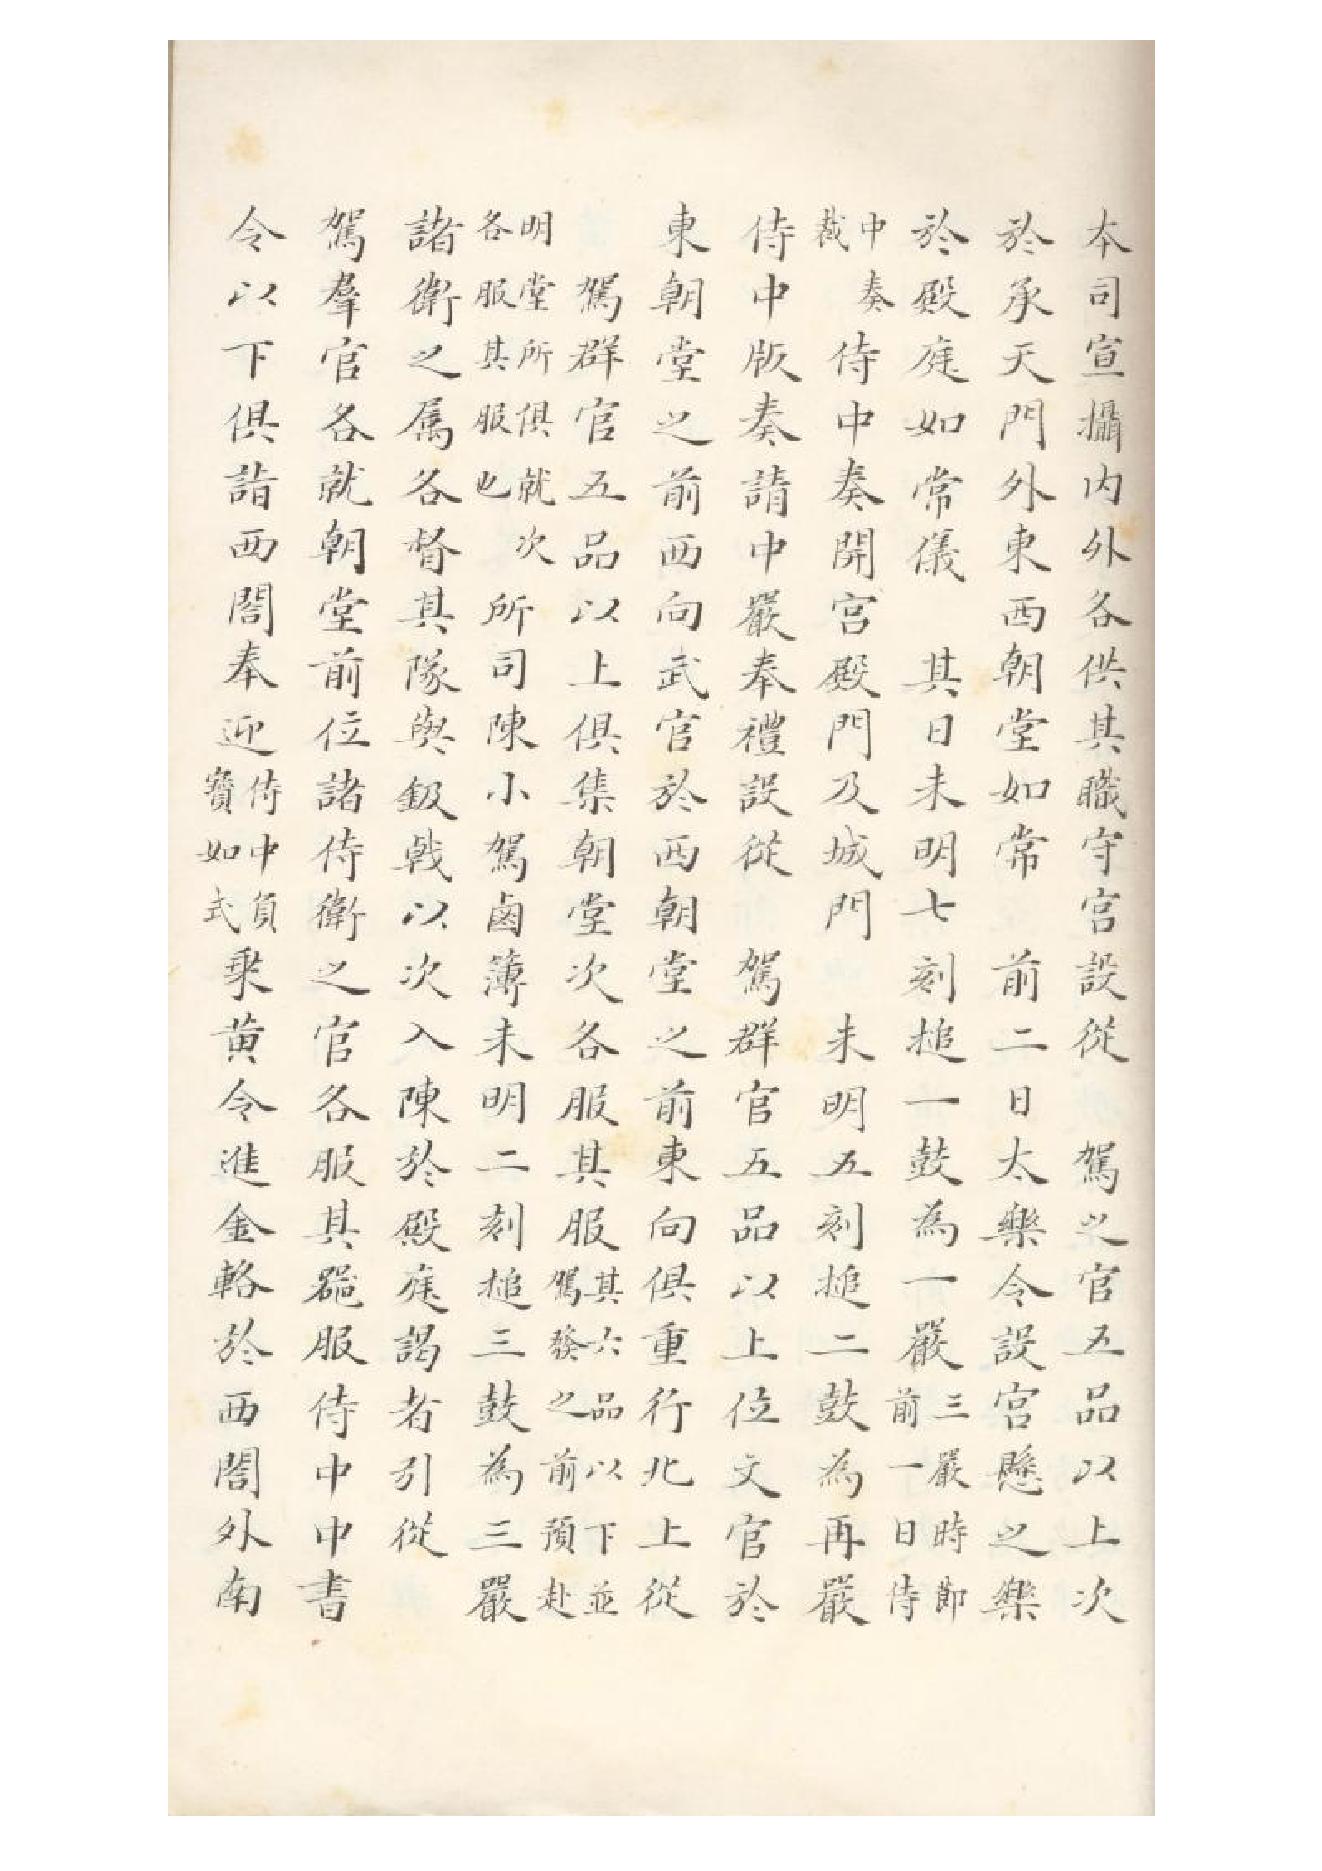 本司宣攝内外各供其職守宫設從　駕之官五品以上次
於承天門外東西朝堂如常　前二日太樂令設宫懸之樂
於殿庭如常儀　其日未明七刻搥一鼓為一嚴三嚴時節前一日侍
中奏裁侍中奏開宫殿門及城門　未明五刻搥二鼓為再嚴
侍中版奏請中嚴奉禮設從　駕群官五品以上位文官於
東朝堂之前西向武官於西朝堂之前東向俱重行北上從
駕群官五品以上俱集朝堂次各服其服其六品以下並駕發之前預赴
明堂所俱就次各服其服也所司陳小駕鹵簿未明二刻搥三鼓為三嚴
諸衛之属各督其隊與鈒戟以次入陳於殿庭謁者引從
駕羣官各就朝堂前位諸侍衛之官各服其器服侍中中書
令以下俱詣西閤奉迎侍中負寶如式乗黄令進金輅於西閤外南